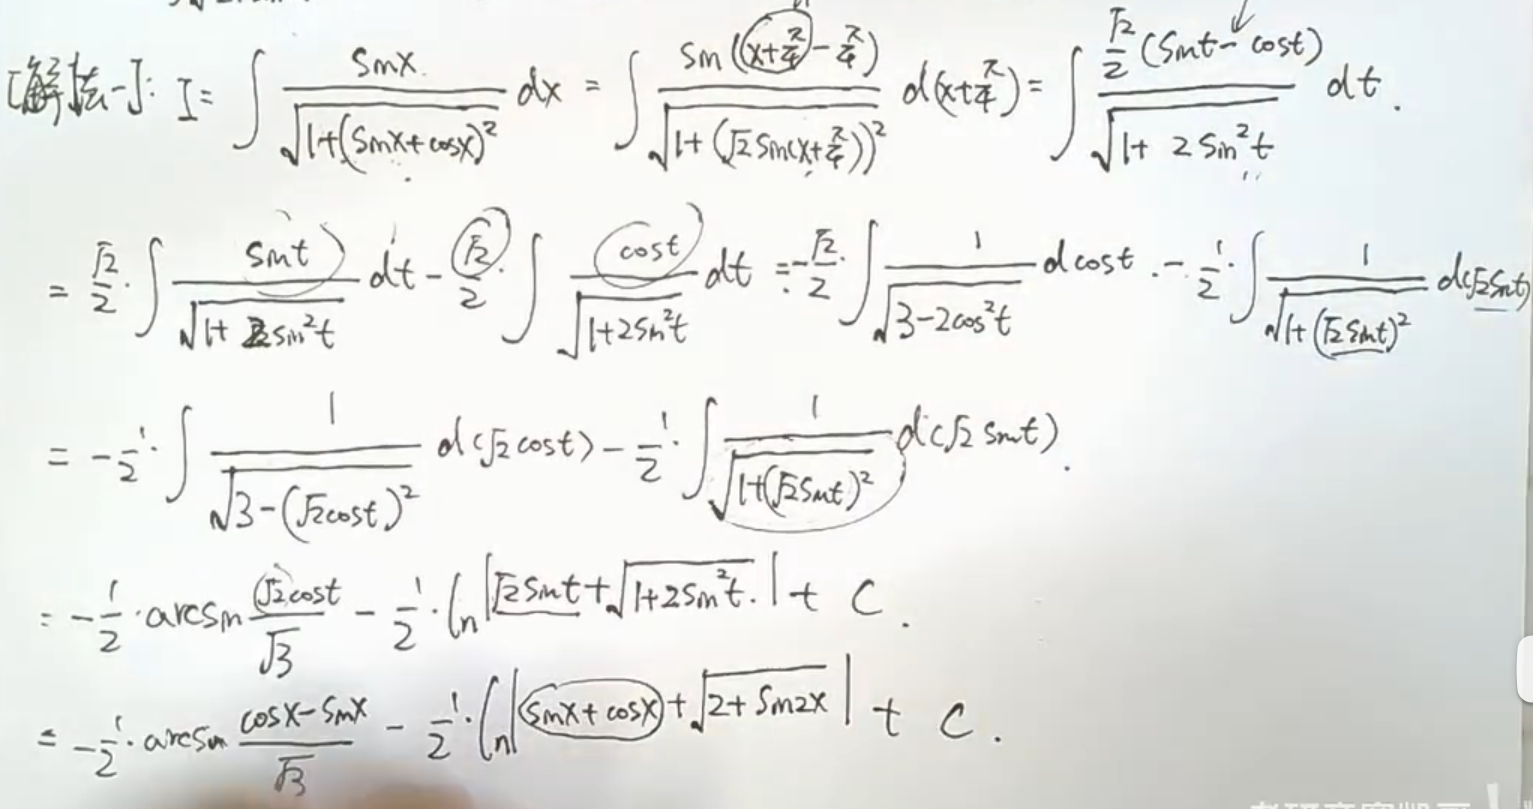 [解法一]: I = ∫ sinx / √(1+(sinx+cosx)²) dx = ∫ sin((x+π/4)-π/4) / √(1+(√2 sin(x+π/4))²) d(x+π/4) = ∫ √2/2 (sint-cost) / √(1+2sin²t) dt.
= √2/2 · ∫ sint / √(1+2sin²t) dt - √2/2 · ∫ cost / √(1+2sin²t) dt = -√2/2 · ∫ 1 / √(3-2cos²t) dcost - 1/2 · ∫ 1 / √(1+(√2 sint)²) d(√2 sint)
= -1/2 · ∫ 1 / √(3-(√2cost)²) d(√2cost) - 1/2 · ∫ 1 / √(1+(√2sint)²) d(√2 sint).
= -1/2 · arcsin √2cost/√3 - 1/2 · ln|√2sint+√(1+2sin²t)| + C.
= -1/2 · arcsin (cosx-sinx)/√3 - 1/2 · ln|(sinx+cosx)+√(2+sin2x)| + C.